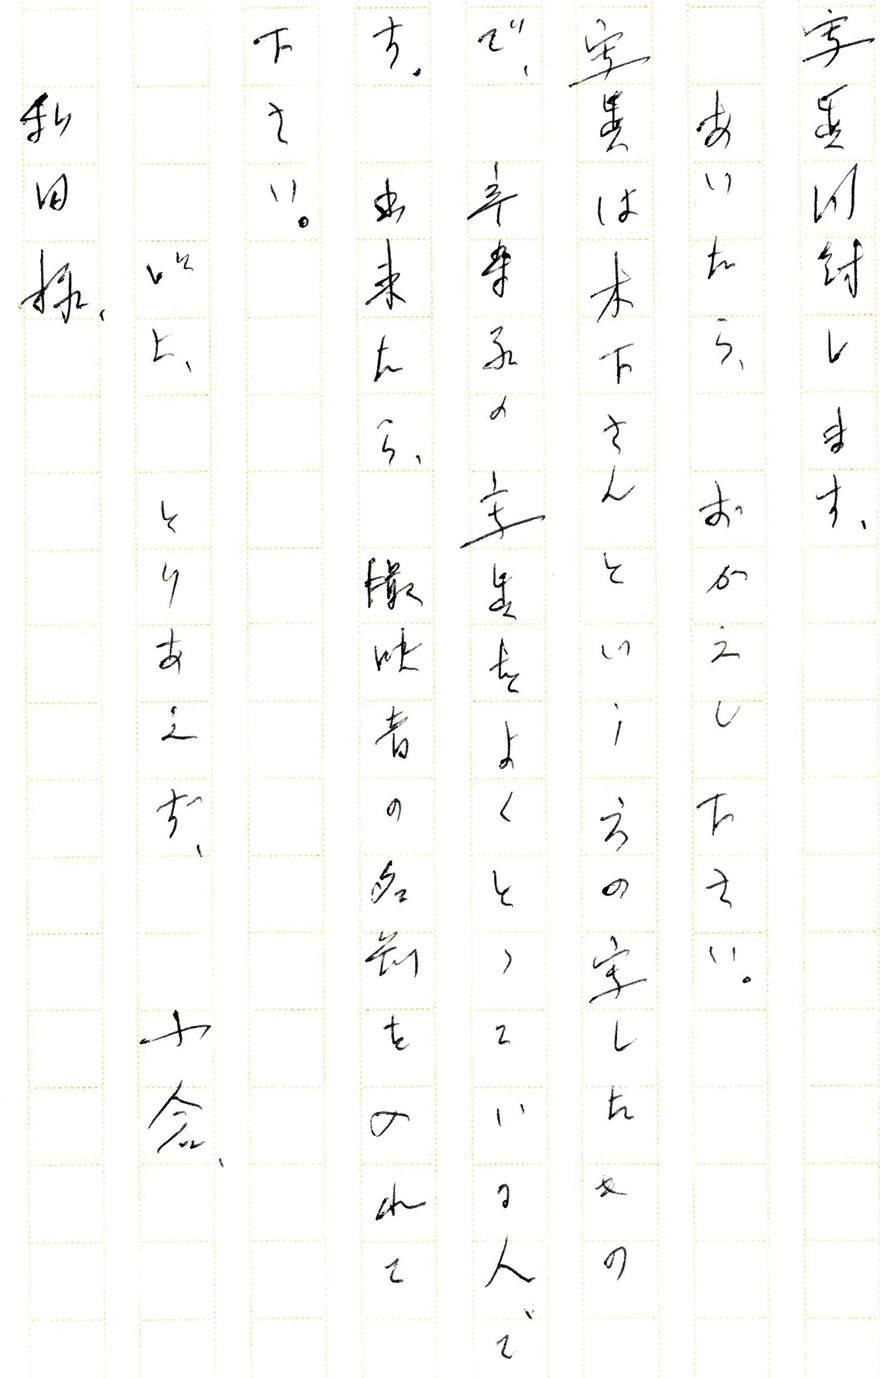 写真同封します、
あいたら、おかえし下さい。
写真は木下さんという方の写したもの
で、の写真をよくとっている人で
す。出来たら、撮映者の名前を入れて
下さい。
以上、とりあえず、小倉、
田様、